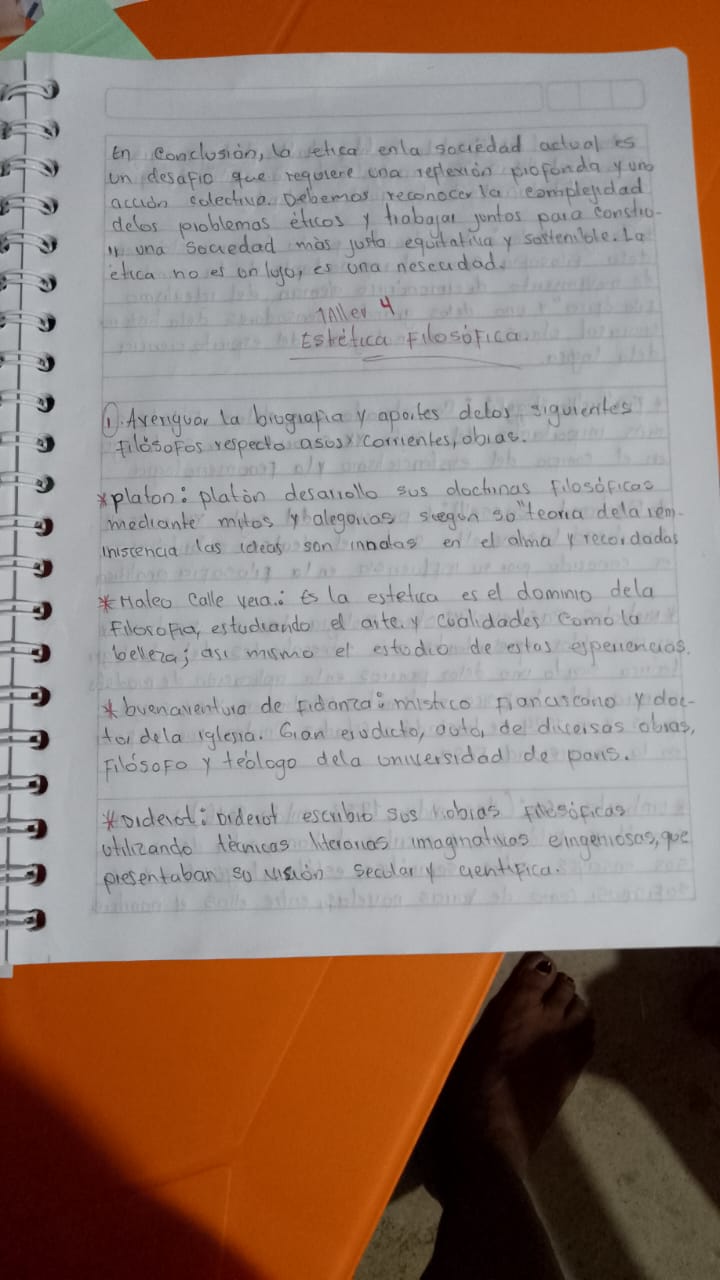 En conclusión, la etica enla sociedad actual es
un desafio que requiere una reflexión profonda y una
acción colectiva. Debemos reconocer la complejidad
delos problemas éticos y trabajar juntos para constru-
ir una sociedad màs justa equitativa y sostenible. La
ética no es un lujo, es una nesecidad.
Taller 4
Estética Filosófica.
1. Averiguar la biografia y aportes delos siguientes
filósofos respecto asus corrientes, obras.
*platon: platòn desarrollo sus doctrinas filosóficas
mediante mitos y alegorias según so "teoria dela rem-
iniscencia las ideas son innatas en el alma y recordadas
*Mateo Calle vera.: Es la estetica es el dominio dela
filosofia, estudiando el arte y cualidades como la
belleza; asi mismo el estudio de estas esperiencias.
*buenaventura de Fidanza: mistico Franciscano y doc-
tor dela iglesia. Gran erudicto, auto, de diversas obras,
Filósofo y teòlogo dela universidad de paris.
*Diderot: Diderot escribió sus obras Filosóficas
utilizando técnicas literarias imaginativas e ingeniosas, que
presentaban su visión secular y cientifica.